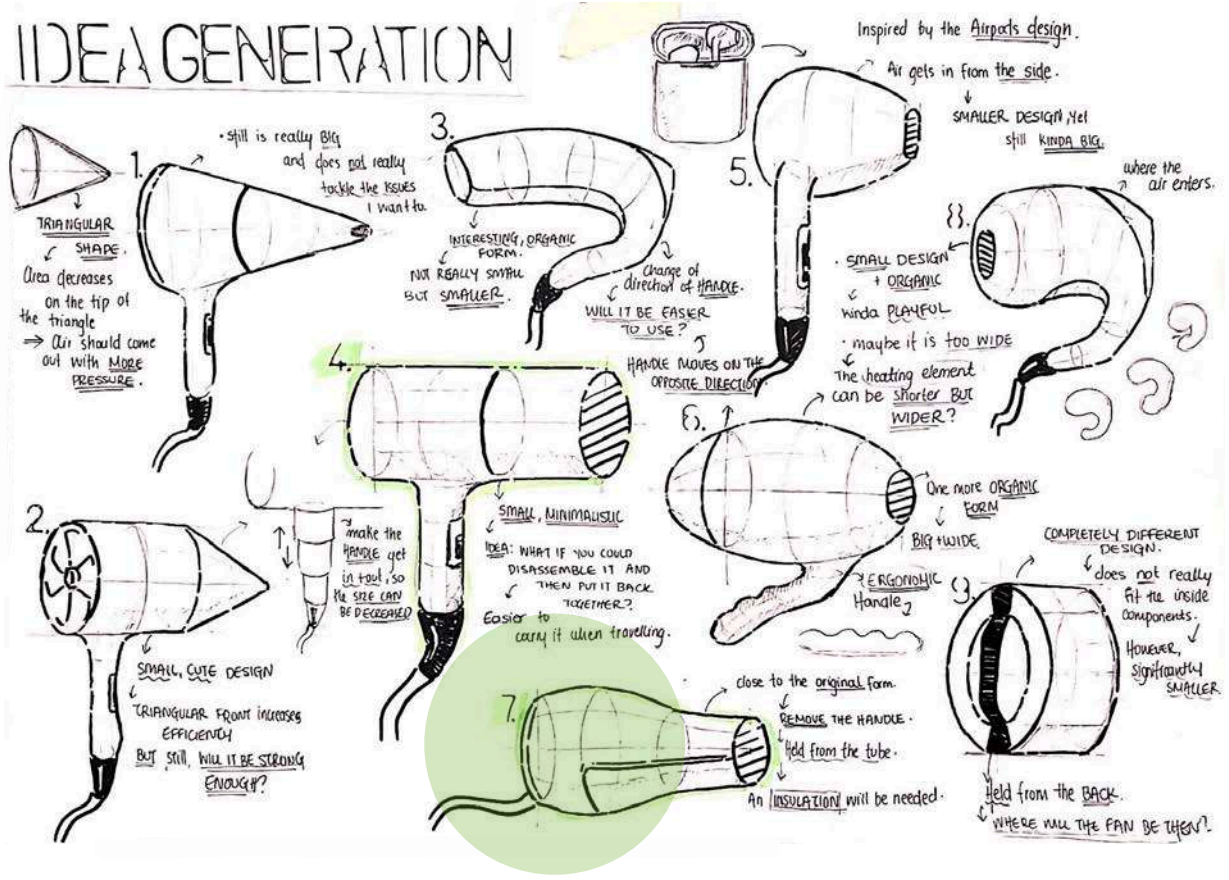 IDEA GENERATION
1.
TRIANGULAR
SHAPE.
Area decreases
on the tip of
the triangle
→ air should come
out with MORE
PRESSURE.
• still is really BIG
and does not really
tackle the issues
I want to.
2.
SMALL, CUTE DESIGN
TRIANGULAR FRONT increases
EFFICIENCY
BUT still, WILL IT BE STRONG
ENOUGH?
make the
HANDLE get
in + out, so
the SIZE CAN
BE DECREASED
3.
INTERESTING, ORGANIC
FORM.
NOT REALLY SMALL
BUT SMALLER.
Change of
direction of HANDLE.
WILL IT BE EASIER
TO USE?
HANDLE MOVES ON THE
OPPOSITE DIRECTION.
4.
SMALL, MINIMALISTIC
IDEA: WHAT IF YOU COULD
DISASSEMBLE IT AND
THEN PUT IT BACK
TOGETHER?
Easier to
carry it when travelling.
5.
Inspired by the Airpods design.
Air gets in from the side.
SMALLER DESIGN, yet
still KINDA BIG.
6.
One more ORGANIC
FORM
BIG + WIDE
ERGONOMIC
Handle
7.
close to the original form.
REMOVE THE HANDLE.
Held from the tube.
An INSULATION will be needed.
8.
where the
air enters.
• SMALL DESIGN
+ ORGANIC
kinda PLAYFUL
• maybe it is TOO WIDE
The heating element
can be shorter BUT
WIDER?
9.
COMPLETELY DIFFERENT
DESIGN.
does not really
fit the inside
components.
HOWEVER,
significantly
SMALLER
Held from the BACK.
WHERE WILL THE FAN BE THEN?